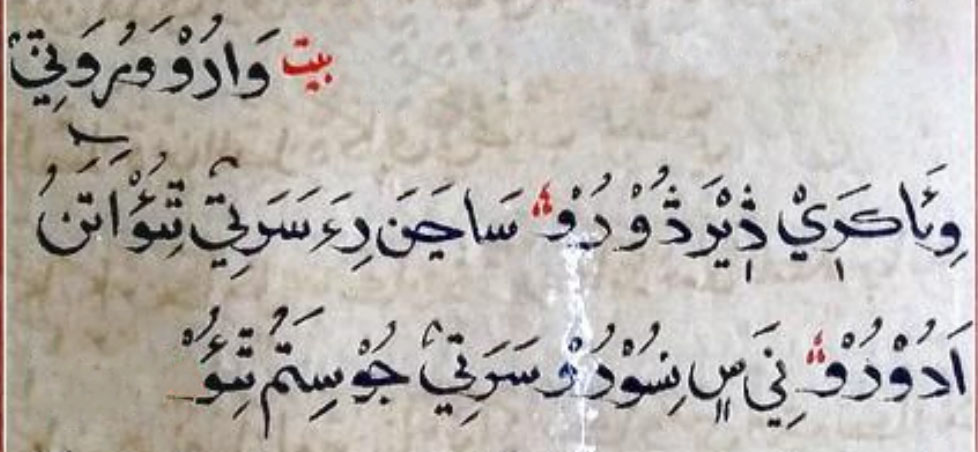 بيت وَادُوْ وَرُوَتِيْ
وِيَاكَرَيْ ڎِيْرَ ڎُوْرُوْ؞ سَاجَنَ دِءَ سَرَتِيْ تِئُوْ اَتَنُ
اَدُوْرُوْ؞ نِيَ سٍ نِسُوْرُوْ سَرَتِيْ جُوْ سِتَمُ تِئُوْ